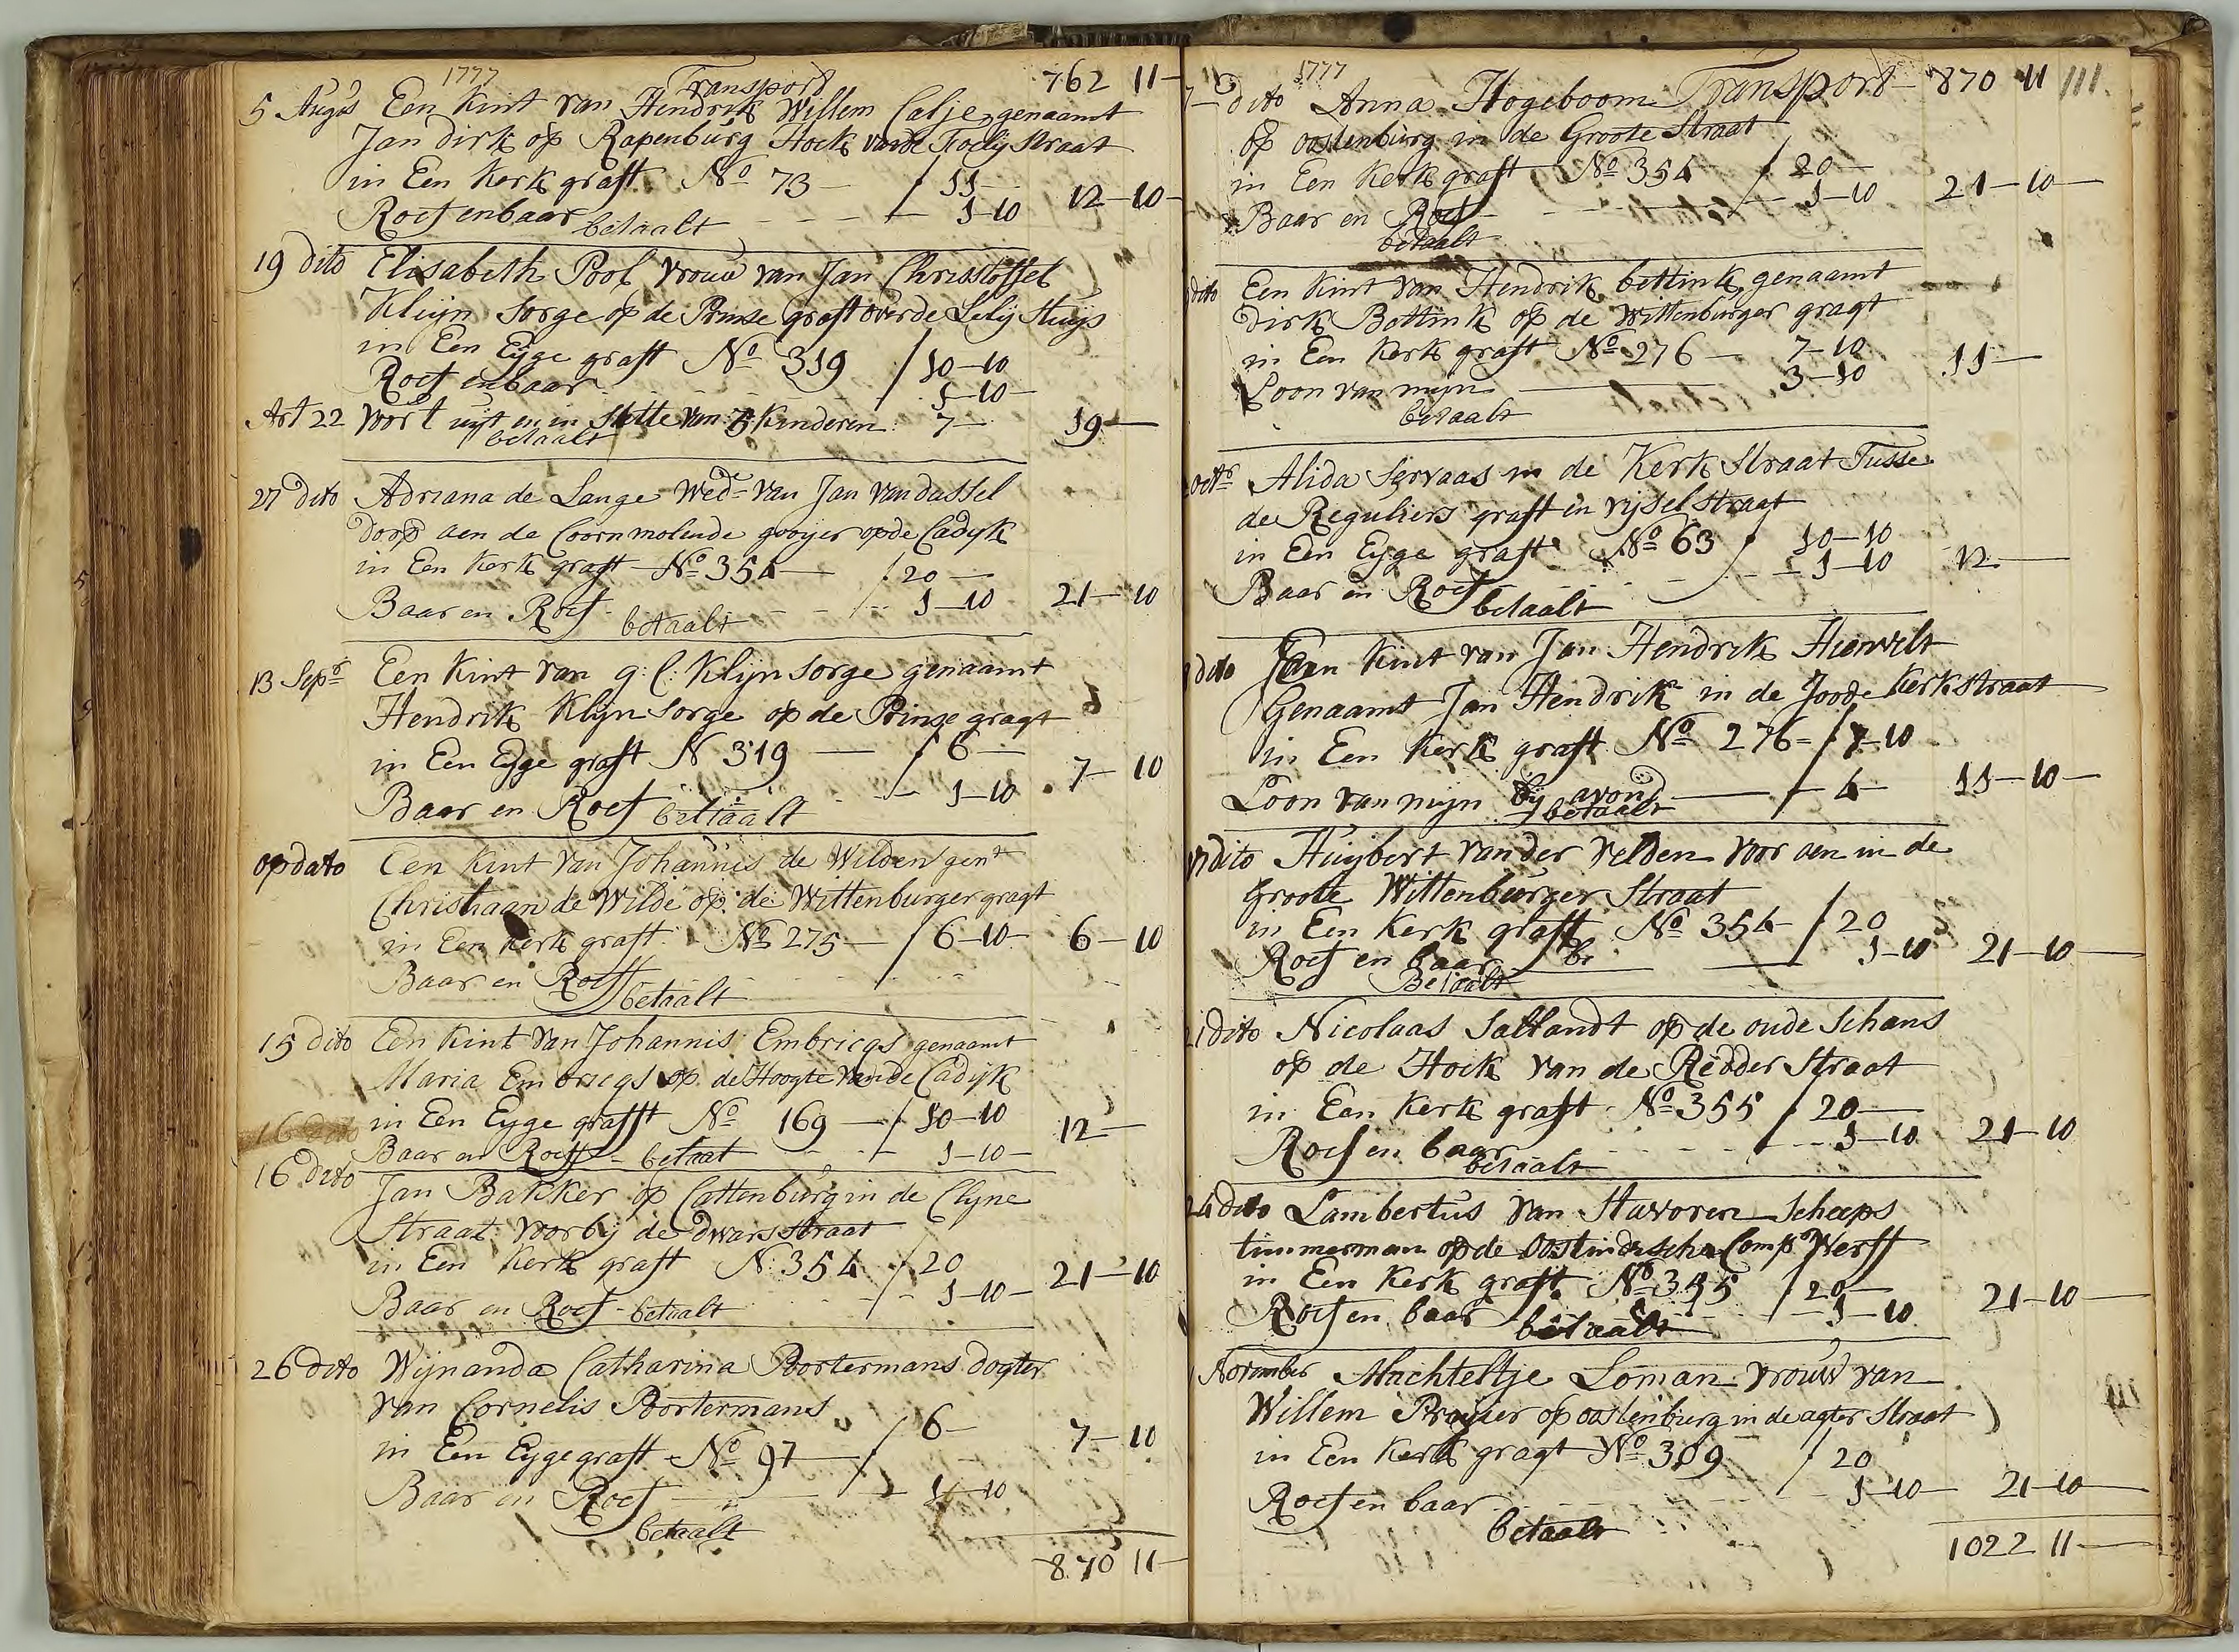 1777 Transport 762 11-
5 Augs Een Kint van Hendrik Willem Calje genaamt
Jan dirk op Rapenburg Hoek vande Foelij straat
in Een Kerk graft No 73 - / 11-
Roef en baar betaalt - - - 1-10 12-10-
19 dito Elisabeth Pool vrouw van Jan Christoffel
Klijn Sorge op de Prinse graft over de Lelij Sluys
in Een Eyge graft No 319 / 10-10
Roef en baar 1-10-
Art 22 voort uyt en in sette van 7 Kinderen 7- 19-
betaalt
27 dito Adriana de Lange Wede van Jan van dassel
dorp aen de Coornmolen de gooyer op de Cadyk
in Een Kerk graft No 354 - / 20-
Baar en Roef - betaalt - - 1-10 21-10
13 Sepr Een Kint van g: C: Klijn Sorge genaamt
Hendrik Klijn Sorge op de Prinse gragt
in Een Eyge graft N 319 - / 6-
Baar en Roef betaalt - 1-10 7-10
op dato Een Kint van Johannis de Wilden gent
Christiaan de Wilde op de Wittenburger gragt
in Een Kerk graft No 275 - / 6-10- 6-10
Baar en Roef betaalt
15 dito Een Kint van Johannis Embricqs genaamt
Maria Embricqs op de Hoogte van de Cadijk
16 dito in Een Eyge grafft No 169 - / 10-10 12-
Baar en Roeff - betaat - - 1-10-
16 dito Jan Bakker op Cattenburg in de Clyne
Straat voorby de dwars straat
in Een Kerk graft N 354 / 20
Baar en Roef - betaalt - 1-10- 21-10
26 dito Wijnanda Catharina Poortermans dogter
van Cornelis Poortermans
in Een Eyge graft No 97 - / 6- 7-10
Baar en Roef - 1-10
betaalt
870 11-
1777
dito Anna Hogeboom Transport - 870 11 111.
op oostenburg in de Groote Straat
in Een Kerk graft No 354 / 20-
Baar en Roef - - - 1-10 21-10-
betaalt
dito Een Kint van Hendrik bettink genaamt
dirk Bottink op de Wittenburger gragt
in Een Kerk graft No 276 - 7-10
Loon van mijn - 3-10 11-
betaalt
octr Alida Servaas in de Kerk straat Tusse
de Reguliers graft en vijsel straat
in Een Eyge graft No 63 / 10-10
Baar en Roef - - 1-10 12-
betaalt
dito Een Kint van Jan Hendrik Hienvelt
Genaamt Jan Hendrik in de Joode Kerk straat
in Een Kerk graft No 276 - / 7-10
Loon van mijn bij avond - 4- 11-10-
betaalt
17 dito Huijbert van der Velden voor aen in de
groote Wittenburger Straat
in Een Kerk graft No 354 - / 20
Roef en baar be - 1-10 21-10-
Betaalt
21 dito Nicolaas Sallandt op de oude Schans
op de Hoek van de Redder Straat
in Een Kerk graft No 355 / 20-
Roef en baar - - - 1-10 21-10
betaalt
24 dito Lambertus van Stavoren Scheeps
timmerman op de Oostindische Comp Werff
in Een Kerk graft No 355 / 20-
Roef en baar betaalt - 1-10 21-10-
November Machteltje Loman vrouw van
Willem Proyser op oostenburg in de agter Straat
in Een Kerk gragt No 309 / 20
Roef en baar - - - 1-10- 21-10-
betaalt
1022 11-